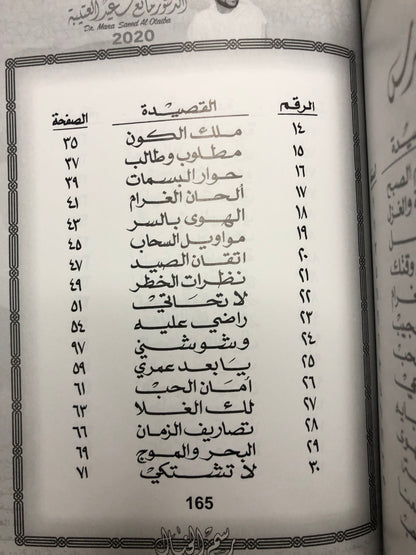 الدكتور مانع سعيد العتيبة
Dr. Mana Saeed Al Otaiba
2020
الرقم القصيدة الصفحة
١٤ ملك الكون ٣٥
١٥ مطلوب وطالب ٣٧
١٦ حوار البسمات ٣٩
١٧ ألحان الغرام ٤١
١٨ الهوى بالسر ٤٣
١٩ مواويل السحاب ٤٥
٢٠ اتقان الصيد ٤٧
٢١ نظرات الخطر ٤٩
٢٢ لا تحاتي ٥١
٢٣ راضي عليه ٥٤
٢٤ وشوشني ٩٧
٢٥ يا بعد عمري ٥٩
٢٦ أمان الحب ٦١
٢٧ لك الغلا ٦٣
٢٨ تصاريف الزمان ٦٦
٢٩ البحر والموج ٦٩
٣٠ لا تشتكي ٧١
165